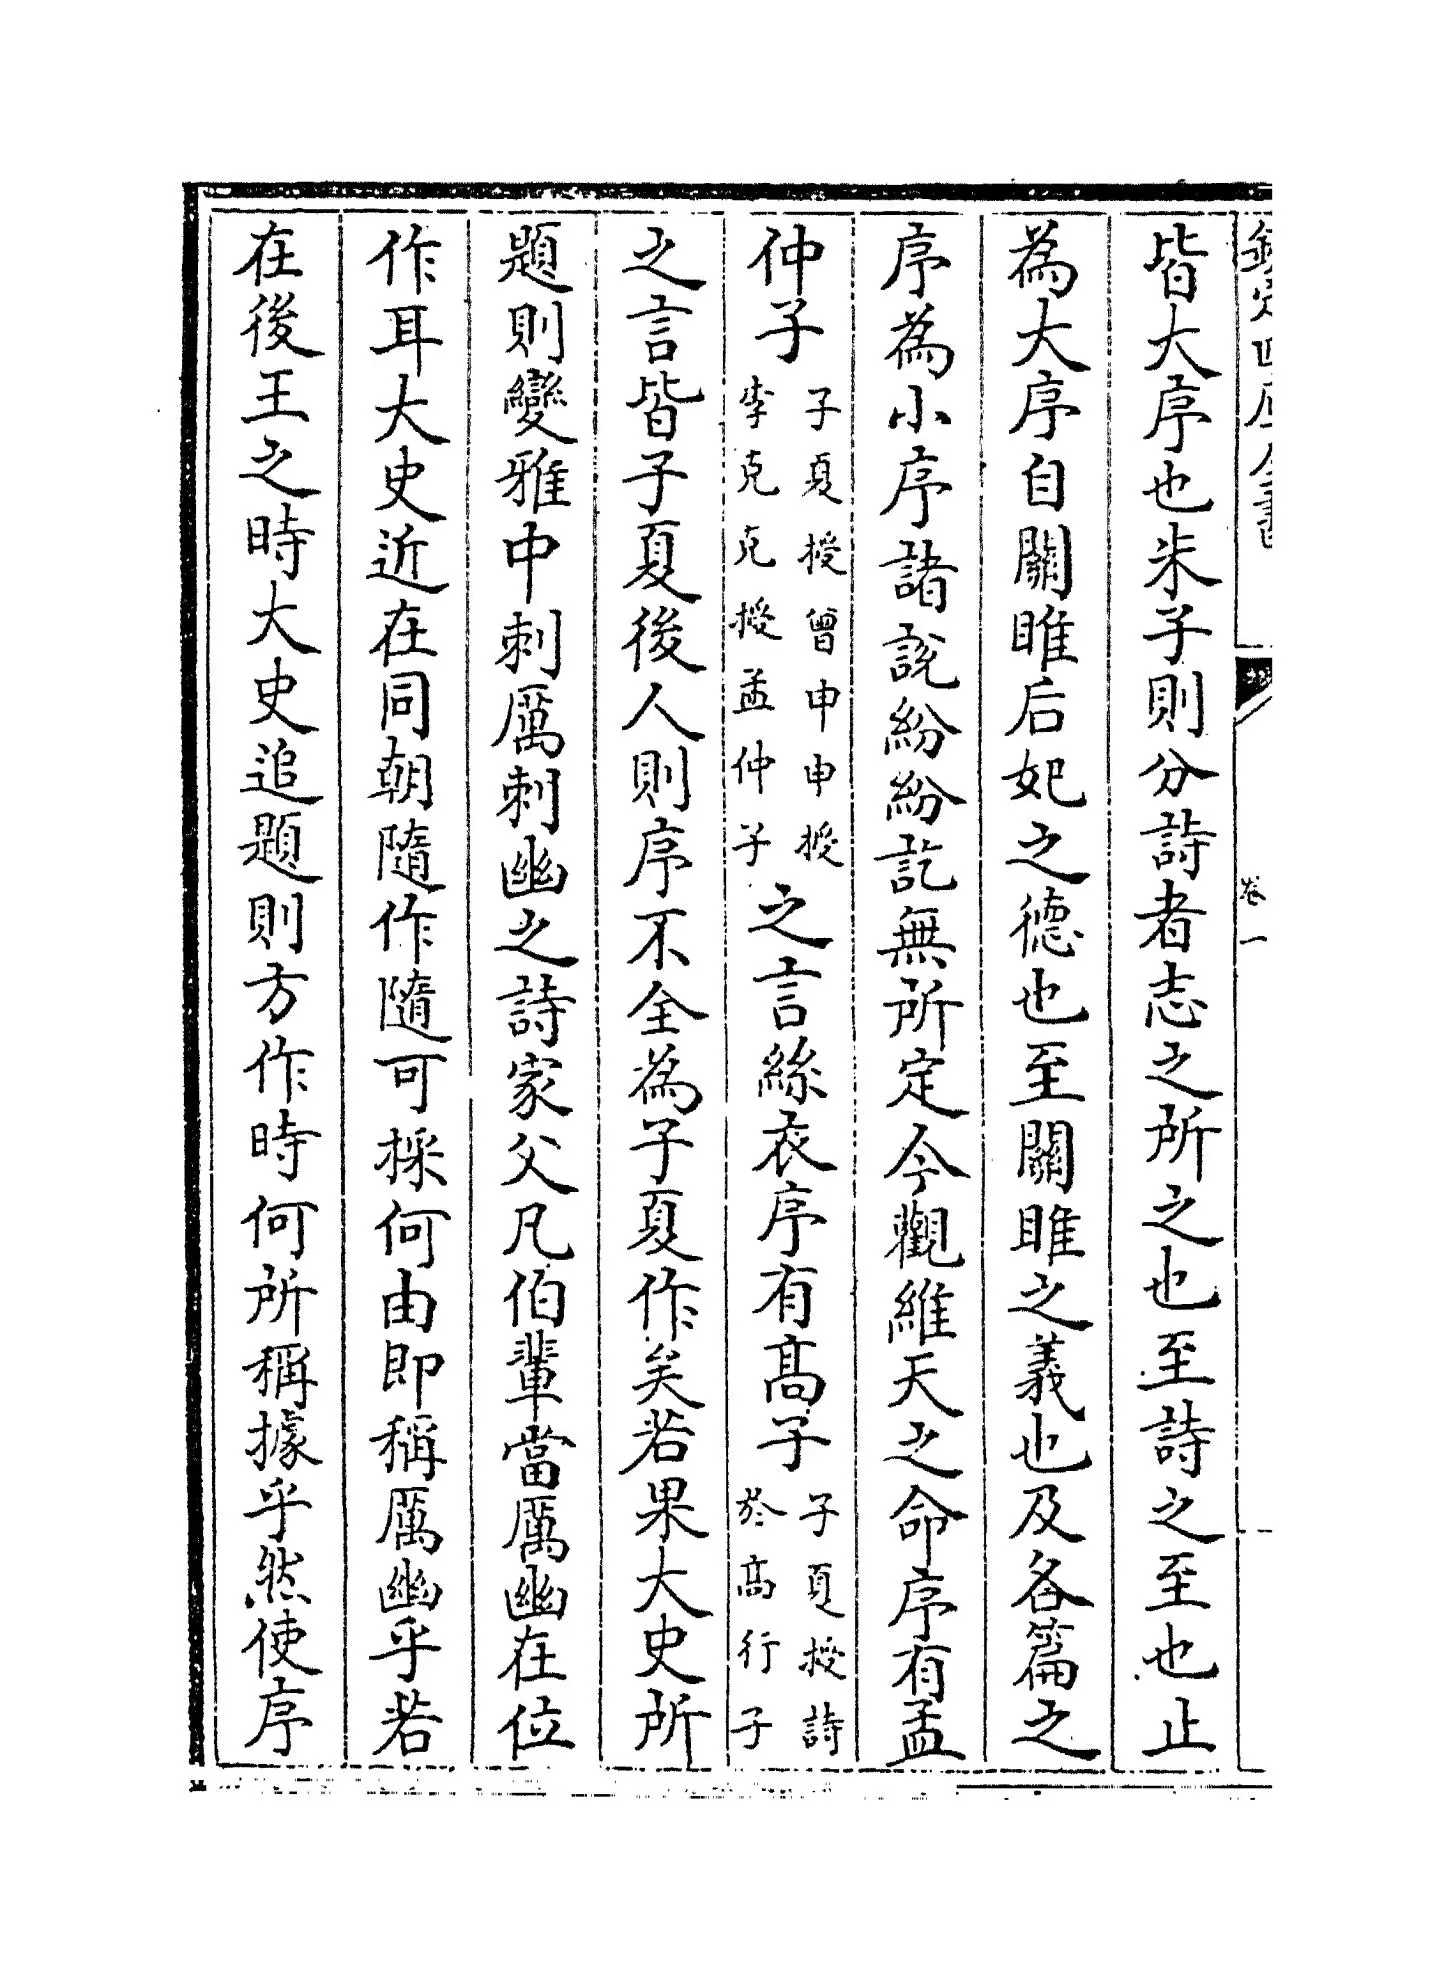 欽定四庫全書
卷一
皆大序也朱子則分詩者志之所之也至詩之至也止
為大序自關雎后妃之德也至關雎之義也及各篇之
序為小序諸説紛紛訖無所定今觀維天之命序有孟
仲子子夏授曾申申授李克克授孟仲子之言絲衣序有髙子子夏授詩於高行子
之言皆子夏後人則序不全為子夏作矣若果大史所
題則變雅中刺厲刺幽之詩家父凡伯輩當厲幽在位
作耳大史近在同朝隨作隨可採何由即稱厲幽乎若
在後王之時大史追題則方作時何所稱據乎然使序